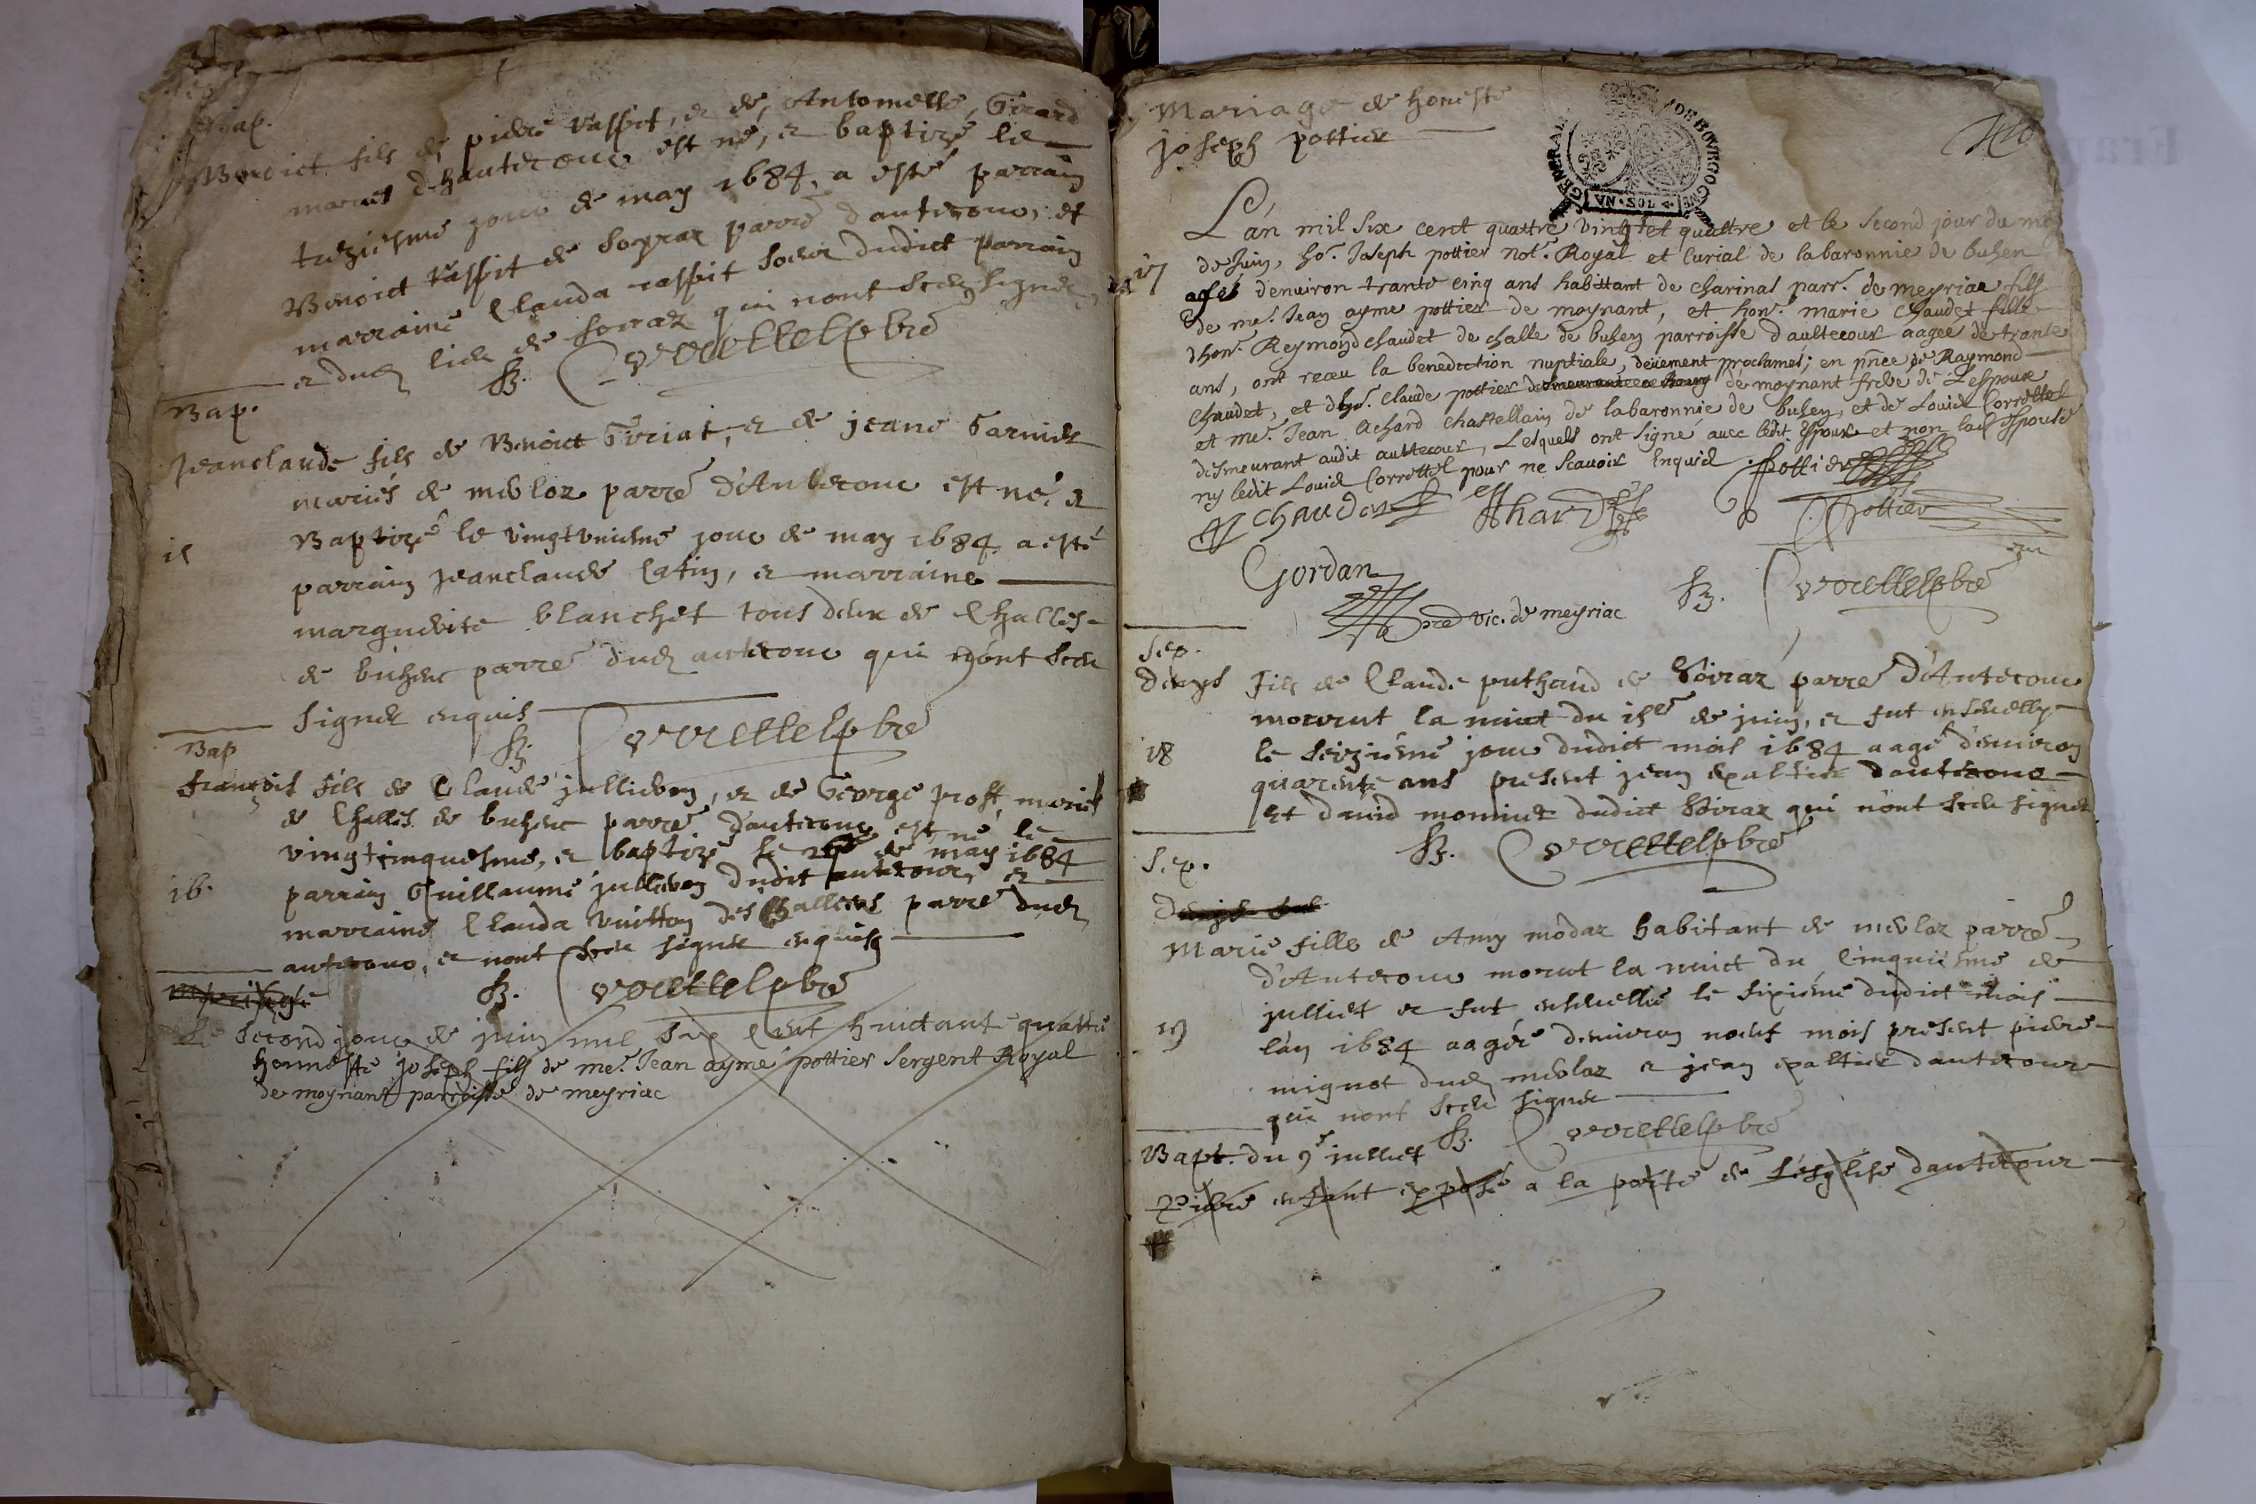 Bap.
Benoict fils de pierre Vaspit, et de, Antoinette, Girard
mariés d'hautecour est né, et baptizé le
treziesme jour de may 1684, a esté parrain
Benoict Vaspit de Soyraz parre d'autecour, et
marraine Clauda vaspit soeur dudict parrain
et dud lieu de soiraz qui nont sceu signer
Bap.
Jeanclaude fils de Benoict Giriat, et de jeane Garnier
mariés de merloz parre d'Autecour est né, et
15
Baptizé le vingtuniesme jour de may 1684 a esté
parrain Jeanclaude Catin, et marraine
marguerite blanchet tous deux de Challes
de buhenc parre dud autecour qui n'ont sceu
signer enquis
Bap
françois fils de Claude jullieron, et de George prost mariés
de Challes de buhenc parre d'autecour est né le
vingtcinquesme, et baptizé le de may 1684
16.
parrain Guillaume jullieron dudit autecour, et
marraine Clauda Vuitton des parre dud
autecour, et nont sceu signer enquis
Mariage
Le second jour de juin mil six Cent huictante quattre
honneste joseph fils de me. Jean aymé pottier sergent Royal
de moynant parroisse de meyriac
Mariage de honeste
joseph pottier
GENERAL DE BOURGOGNE
L'an mil six cent quattre vingt et quattre et le second jour du moy
17
de Juin, ho. Joseph pottier not. Royal et Curial de la baronnie de buhen
agé d'environ trante cinq ans habittant de charinas parr. de meyriac fils
de me. Jean ayme pottier de moynant, et hon. marie Chaudet fille
d'hon. Reymond chaudet de challe de buhen parroisse d'aultecour aagee de trante
ans, ont receu la benediction nuptiale, deüement proclamés; en pñce de Raymond
Chaudet, et d'ho. Claude pottier de moynant frere de L'espoux
et me. Jean Achard Chastellain de la baronnie de buhen, et de Louis Correttel
desmeurant audit aultecour, Lesquels ont signé avec ledit Espoux et non lad Espouse
ny ledit Louis Correttel pour ne scavoir Enquis
pottier
chaudet
Achard
pottier
Gordan
vic. de meyriac
Sep.
Denys fils de Claude puthaud de Soiraz parre d'Autecour
mourut la nuict du 15e de juin, et fut ensevelly
18
le seiziéme jour dudict mois 1684 aagé d'environ
quarente ans present jean expaltier d'autecour
et david moniut dudict Soiraz qui n'ont sceu signer
Sep.
Marie fille de Amy modaz habitant de merloz parre
d'Autecour morut la nuict du Cinquiesme de
julliet et fut ensevellie le sixiéme dudict mois
19
l'an 1684 aagée d'environ noeuf mois present pierre
mignot dud merloz et jean expaltier d'autecour
qui nont sceu signer
Bapt. du 9e julliet
enfant exposé a la porte de l'esglise d'autecour